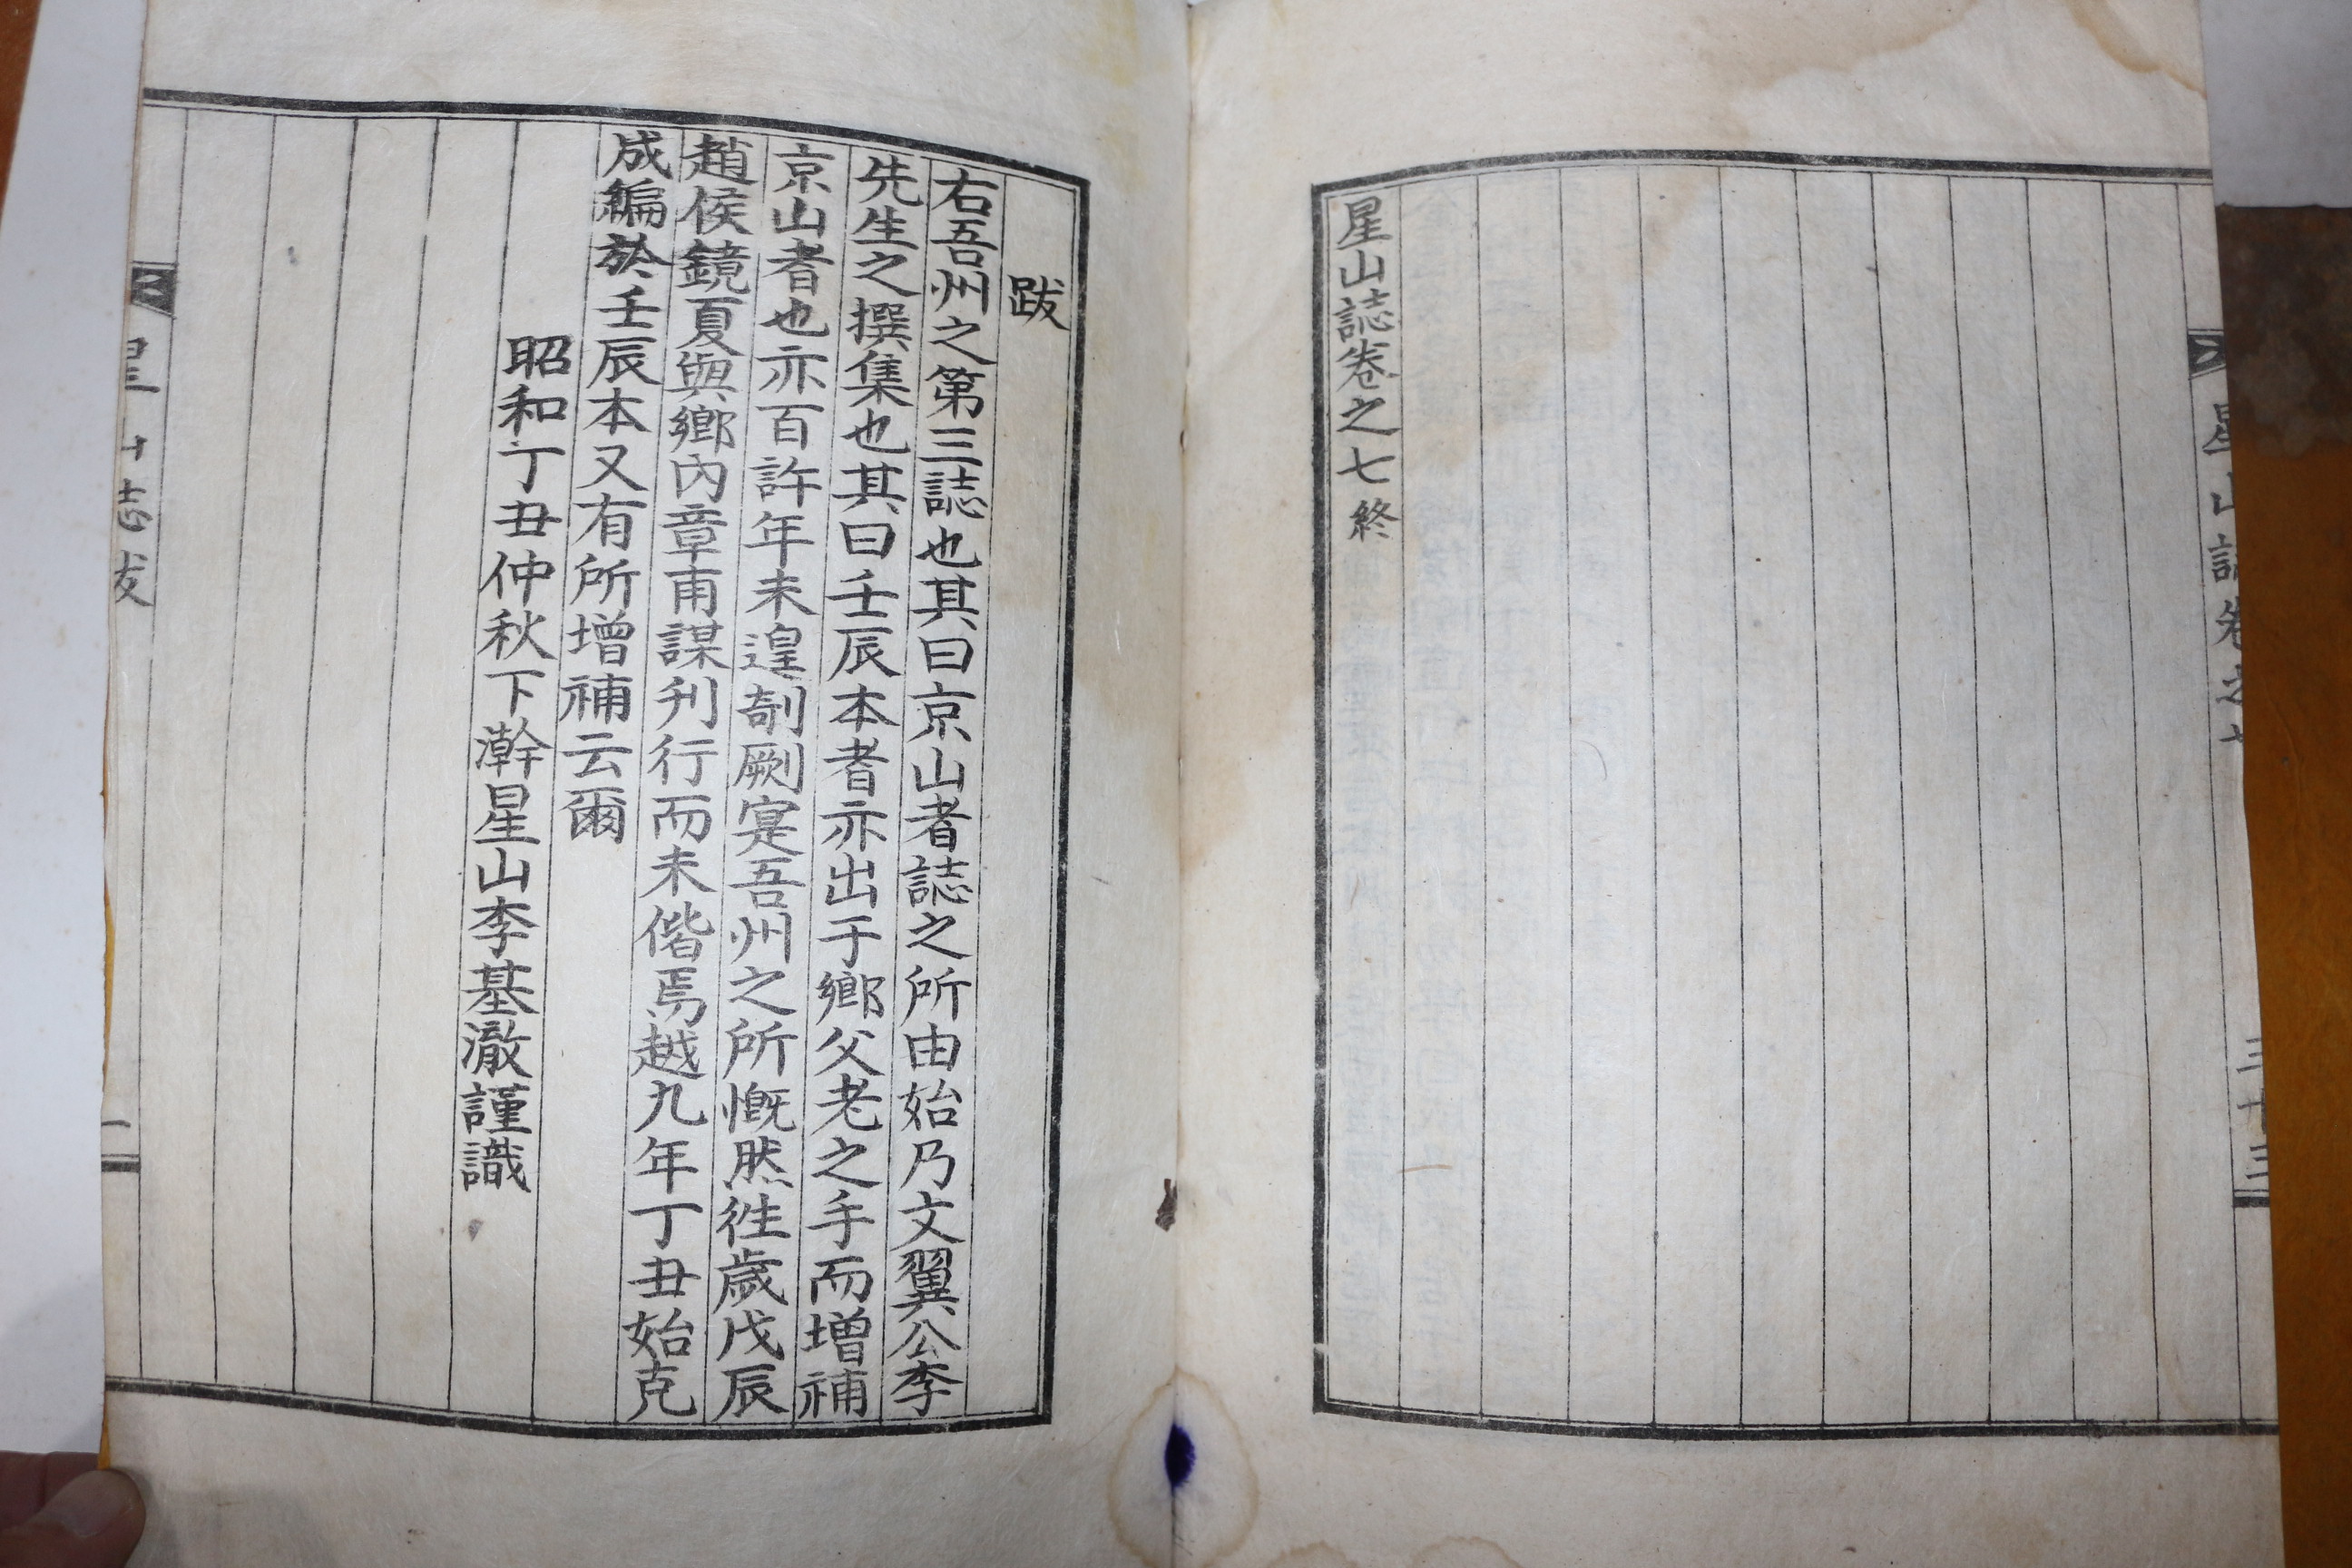 星山誌卷之七
三十三
星山誌卷之七終
跋
右吾州之第三誌也其曰京山者誌之所由始乃文翼公李
先生之撰集也其曰壬辰本者亦出于鄉父老之手而增補
京山者也亦百許年未遑剞劂寔吾州之所慨然徃歲戊辰
趙侯鏡夏與鄉內章甫謀刋行而未偕焉越九年丁丑始克
成編於壬辰本又有所增補云爾
昭和丁丑仲秋下澣星山李基澈謹識
星山誌跋
一